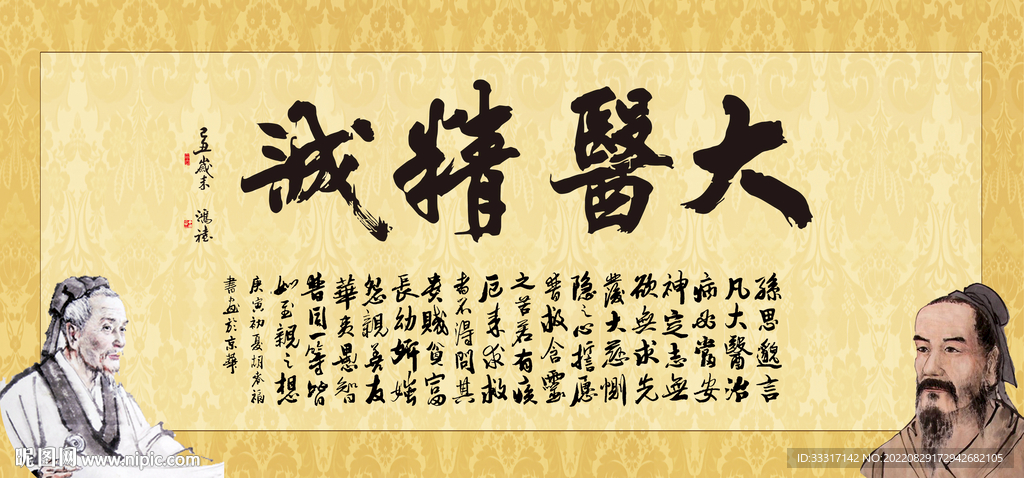 大醫精誠
己丑歲末
鴻
孫思邈言
凡大醫治
病必當安
神定志無
欲無求先
發大慈惻
隱之心誓愿
普救含靈
之苦若有疾
厄来求救
者不得問其
貴賤貧富
長幼妍媸
怨親善友
華夷愚智
普同一等皆
如至親之想
庚寅初夏胡
書画於京華
昵图网 www.nipic.com
ID:33317142 NO:20220829172942682105